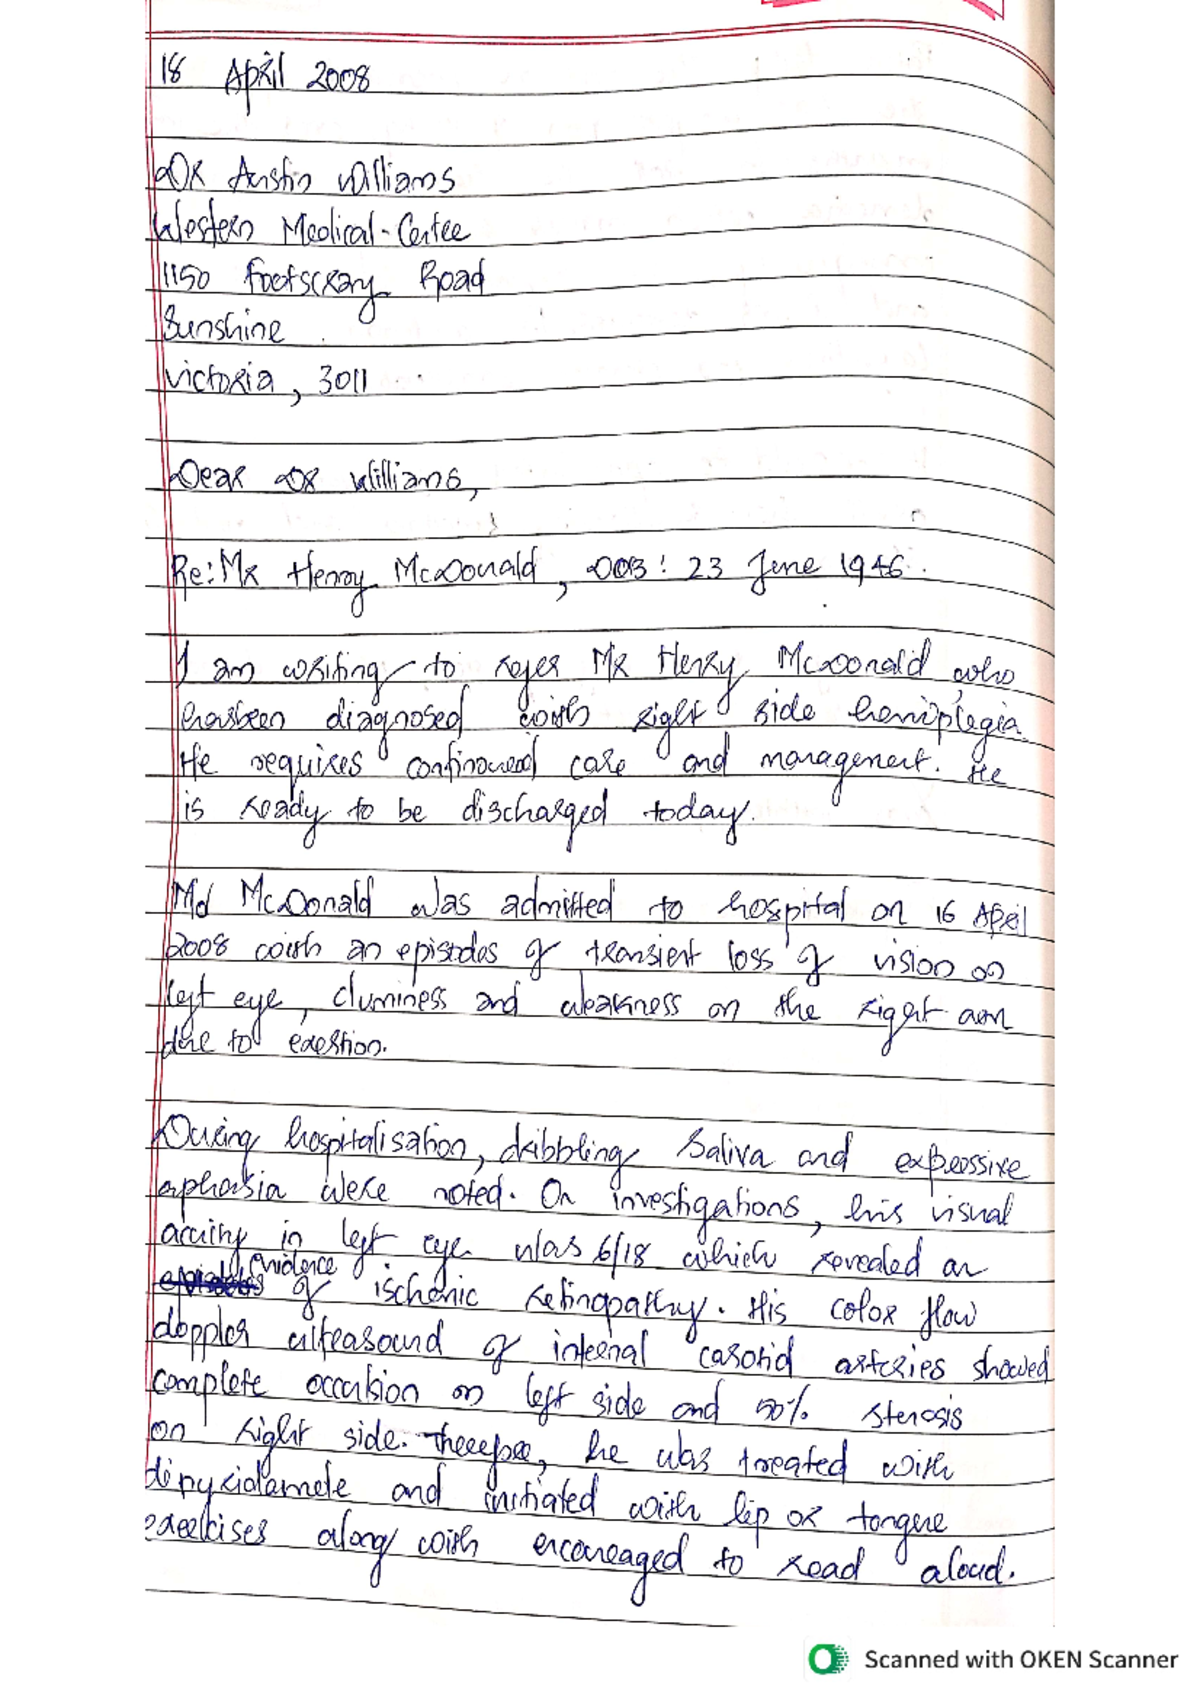 18 April 2008
Dr Austin Williams
Western Medical-Centre
1150 Footscray Road
Sunshine
Victoria, 3011
Dear Dr Williams,
Re: Mr Henry McDonald, DOB: 23 June 1946.
I am writing to refer Mr Henry McDonald who
hasbeen diagnosed with right side hemiplegia.
He requires continoued care and management. He
is ready to be discharged today.
Mr McDonald was admitted to hospital on 16 April
2008 with an episodes of transient loss of vision on
left eye, cluminess and weakness on the right arm
due to exertion.
During hospitalisation, dribbling saliva and expressive
aphasia were noted. On investigations, his visual
acuity in left eye was 6/18 which revealed an
evidence of ischemic retinopathy. His color flow
doppler ultrasound of internal carotid arteries showed
complete occulsion on left side and 50% stenosis
on right side. Therefore, he was treated with
dipyridamole and initiated with lip or tongue
exercises along with encouraged to read aloud.
Scanned with OKEN Scanner